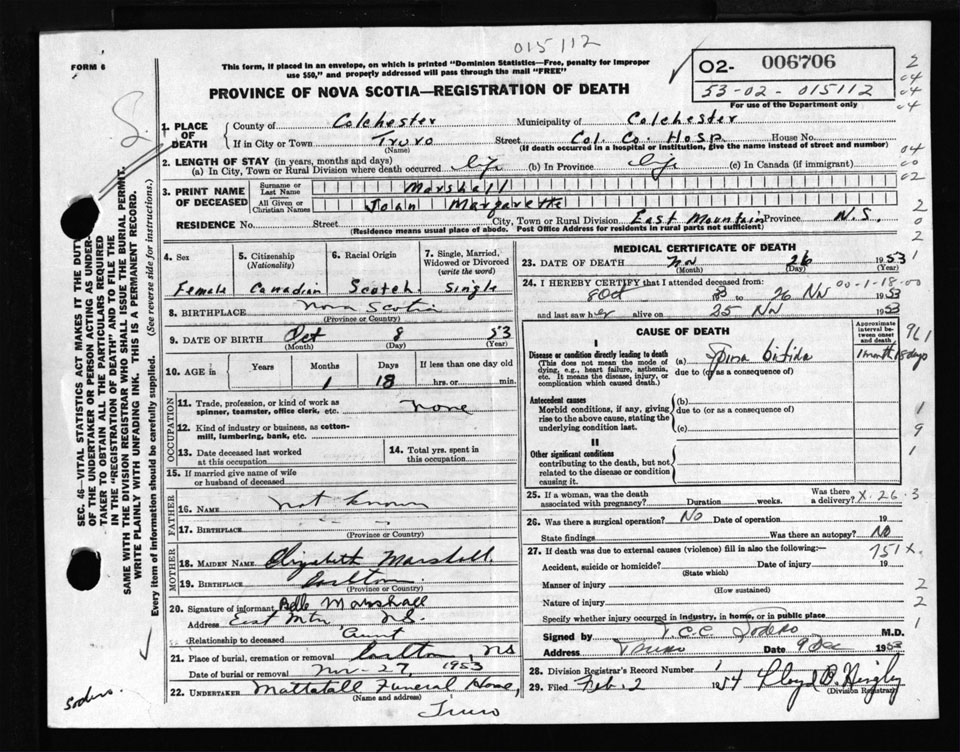 015112
FORM 6
This form, if placed in an envelope, on which is printed "Dominion Statistics—Free, penalty for improper
use $50," and properly addressed will pass through the mail "FREE"
O2- 006706
53-02-015112
For use of the Department only
PROVINCE OF NOVA SCOTIA—REGISTRATION OF DEATH
1. PLACE OF DEATH
County of Colchester Municipality of Colchester
If in City or Town Truro Street Col. Co. Hosp House No.
(Name) (If death occurred in a hospital or institution, give the name instead of street and number)
2. LENGTH OF STAY (in years, months and days)
(a) In City, Town or Rural Division where death occurred life (b) In Province life (c) In Canada (if immigrant)
3. PRINT NAME OF DECEASED
Surname or Last Name Marshall
All Given or Christian Names Joan Margarette
RESIDENCE No. Street City, Town or Rural Division East Mountain Province N.S.
(Residence means usual place of abode. Post Office Address for residents in rural parts not sufficient)
4. Sex 5. Citizenship (Nationality) 6. Racial Origin 7. Single, Married, Widowed or Divorced (write the word)
Female Canadian Scotch Single
8. BIRTHPLACE Nova Scotia
(Province or Country)
9. DATE OF BIRTH Oct 8 53
(Month) (Day) (Year)
10. AGE in Years Months Days If less than one day old
1 18 hrs. or min.
OCCUPATION
11. Trade, profession, or kind of work as spinner, teamster, office clerk, etc. none
12. Kind of industry or business, as cotton-mill, lumbering, bank, etc.
13. Date deceased last worked at this occupation 14. Total yrs. spent in this occupation
15. If married give name of wife or husband of deceased
FATHER
16. NAME not known
17. BIRTHPLACE
(Province or Country)
MOTHER
18. MAIDEN NAME Elizabeth Marshall
19. BIRTHPLACE
(Province or Country)
20. Signature of informant Belle Marshall
Address East Mtn N.S.
Relationship to deceased Aunt
21. Place of burial, cremation or removal NS
Date of burial or removal Nov. 27, 1953
22. UNDERTAKER Mattatall Funeral Home,
(Name and address)
Truro
MEDICAL CERTIFICATE OF DEATH
23. DATE OF DEATH Nov 26 1953
(Month) (Day) (Year)
24. I HEREBY CERTIFY that I attended deceased from: 00-1-18-00
8 Oct 53 to 26 Nov 1953
and last saw her alive on 25 Nov 1953
CAUSE OF DEATH
Approximate interval between onset and death
I
Disease or condition directly leading to death
(This does not mean the mode of dying, e.g., heart failure, asthenia, etc. It means the disease, injury, or complication which caused death.)
(a) Spina bifida 1 month 18 days
due to (or as a consequence of)
961
Antecedent causes
Morbid conditions, if any, giving rise to the above cause, stating the underlying condition last.
(b)
due to (or as a consequence of)
(c)
II
Other significant conditions
contributing to the death, but not related to the disease or condition causing it.
25. If a woman, was the death associated with pregnancy? Duration weeks. Was there a delivery? X-26-3
26. Was there a surgical operation? No Date of operation 19
State findings Was there an autopsy? No
27. If death was due to external causes (violence) fill in also the following:— 751X
Accident, suicide or homicide? Date of injury 19
(State which)
Manner of injury
(How sustained)
Nature of injury
Specify whether injury occurred in industry, in home, or in public place
Signed by M.D.
Address Truro Date 9 Dec 1953
28. Division Registrar's Record Number 1
29. Filed Feb. 2 1954
(Division Registrar)
SEC. 46—VITAL STATISTICS ACT MAKES IT THE DUTY
OF THE UNDERTAKER OR PERSON ACTING AS UNDER-
TAKER TO OBTAIN ALL THE PARTICULARS REQUIRED
IN THE "REGISTRATION OF DEATH" AND TO FILE THE
SAME WITH THE DIVISION REGISTRAR WHO SHALL ISSUE THE BURIAL PERMIT.
WRITE PLAINLY WITH UNFADING INK. THIS IS A PERMANENT RECORD.
Every item of information should be carefully supplied. (See reverse side for instructions.)